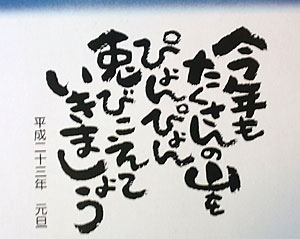 今年も
たくさんの山を
ぴょんぴょん
兎びこえて
いきましょう
平成二十三年 元旦